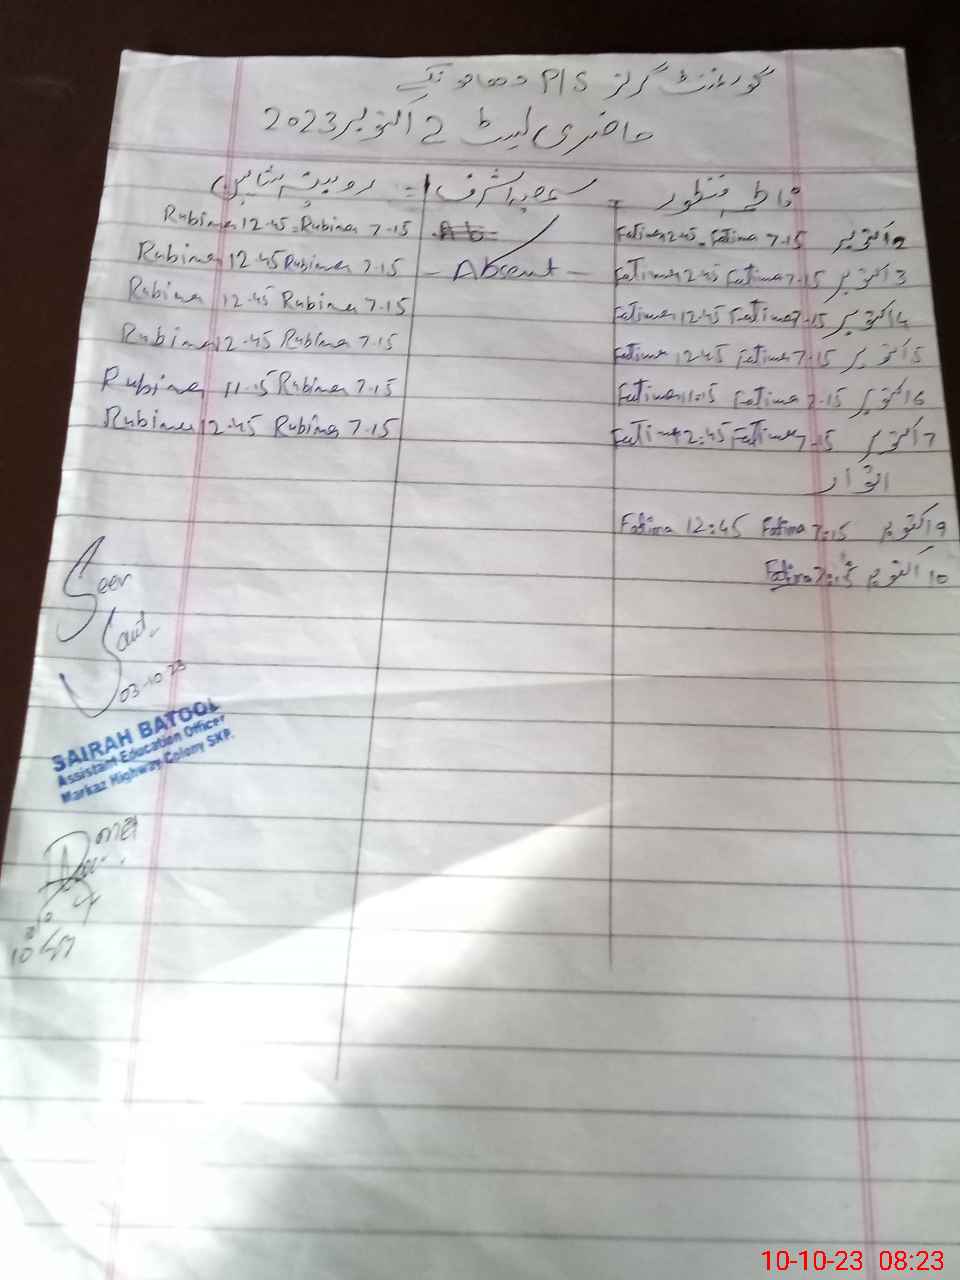 گورنمنٹ گرلز P/S
حاضری لسٹ 2 اکتوبر 2023
فاطمہ منظور
اشرف
روبینہ شاہین
2 اکتوبر Fatima 7.15 Fatima 12.45 Ab Rubina 7.15 Rubina 12.45
3 اکتوبر Fatima 7.15 Fatima 12.45 Absent Rubina 7.15 Rubina 12.45
4 اکتوبر Fatima 7.15 Fatima 12.45 Rubina 7.15 Rubina 12.45
5 اکتوبر Fatima 7.15 Fatima 12.45 Rubina 7.15 Rubina 12.45
6 اکتوبر Fatima 7.15 Fatima 11.15 Rubina 7.15 Rubina 11.15
7 اکتوبر Fatima 7.15 Fatima 12.45 Rubina 7.15 Rubina 12.45
اتوار
9 اکتوبر Fatima 7:15 Fatima 12:45
10 اکتوبر Fatima 7:15
Seen
03-10-23
SAIRAH BATOOL
Assistant Education Officer
Markaz Highway Colony SKP.
10-10-23 08:23